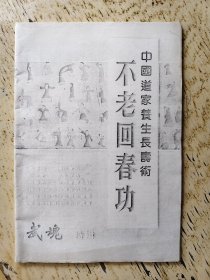 中國道家養生長壽術
不老回春功
武魂